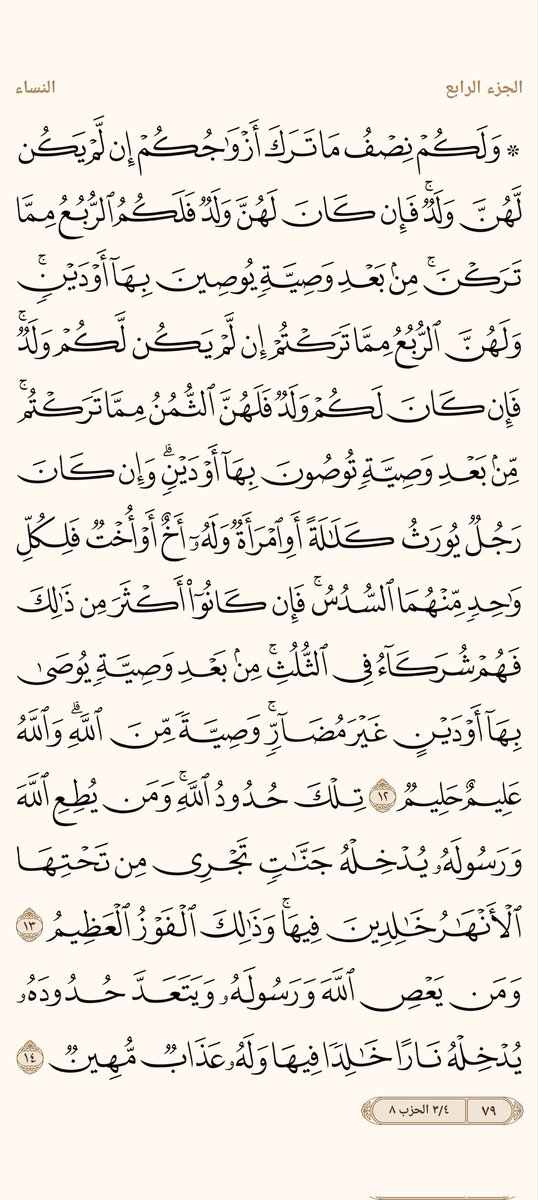 الجزء الرابع
النساء
* وَلَكُمْ نِصْفُ مَا تَرَكَ أَزْوَٰجُكُمْ إِن لَّمْ يَكُن
لَّهُنَّ وَلَدٌۚ فَإِن كَانَ لَهُنَّ وَلَدٌ فَلَكُمُ ٱلرُّبُعُ مِمَّا
تَرَكْنَۚ مِنۢ بَعْدِ وَصِيَّةٍ يُوصِينَ بِهَآ أَوْ دَيْنٍۚ
وَلَهُنَّ ٱلرُّبُعُ مِمَّا تَرَكْتُمْ إِن لَّمْ يَكُن لَّكُمْ وَلَدٌۚ
فَإِن كَانَ لَكُمْ وَلَدٌ فَلَهُنَّ ٱلثُّمُنُ مِمَّا تَرَكْتُمۚ
مِّنۢ بَعْدِ وَصِيَّةٍ تُوصُونَ بِهَآ أَوْ دَيْنٍۗ وَإِن كَانَ
رَجُلٌ يُورَثُ كَلَٰلَةً أَوِ ٱمْرَأَةٌ وَلَهُۥٓ أَخٌ أَوْ أُخْتٌ فَلِكُلِّ
وَٰحِدٍ مِّنْهُمَا ٱلسُّدُسُۚ فَإِن كَانُوٓا۟ أَكْثَرَ مِن ذَٰلِكَ
فَهُمْ شُرَكَآءُ فِى ٱلثُّلُثِۚ مِنۢ بَعْدِ وَصِيَّةٍ يُوصَىٰ
بِهَآ أَوْ دَيْنٍ غَيْرَ مُضَآرٍّۚ وَصِيَّةً مِّنَ ٱللَّهِۗ وَٱللَّهُ
عَلِيمٌ حَلِيمٌ ١٢ تِلْكَ حُدُودُ ٱللَّهِۚ وَمَن يُطِعِ ٱللَّهَ
وَرَسُولَهُۥ يُدْخِلْهُ جَنَّٰتٍ تَجْرِى مِن تَحْتِهَا
ٱلْأَنْهَٰرُ خَٰلِدِينَ فِيهَاۚ وَذَٰلِكَ ٱلْفَوْزُ ٱلْعَظِيمُ ١٣
وَمَن يَعْصِ ٱللَّهَ وَرَسُولَهُۥ وَيَتَعَدَّ حُدُودَهُۥ
يُدْخِلْهُ نَارًا خَٰلِدًا فِيهَا وَلَهُۥ عَذَابٌ مُّهِينٌ ١٤
٧٩
٣/٤ الحزب ٨